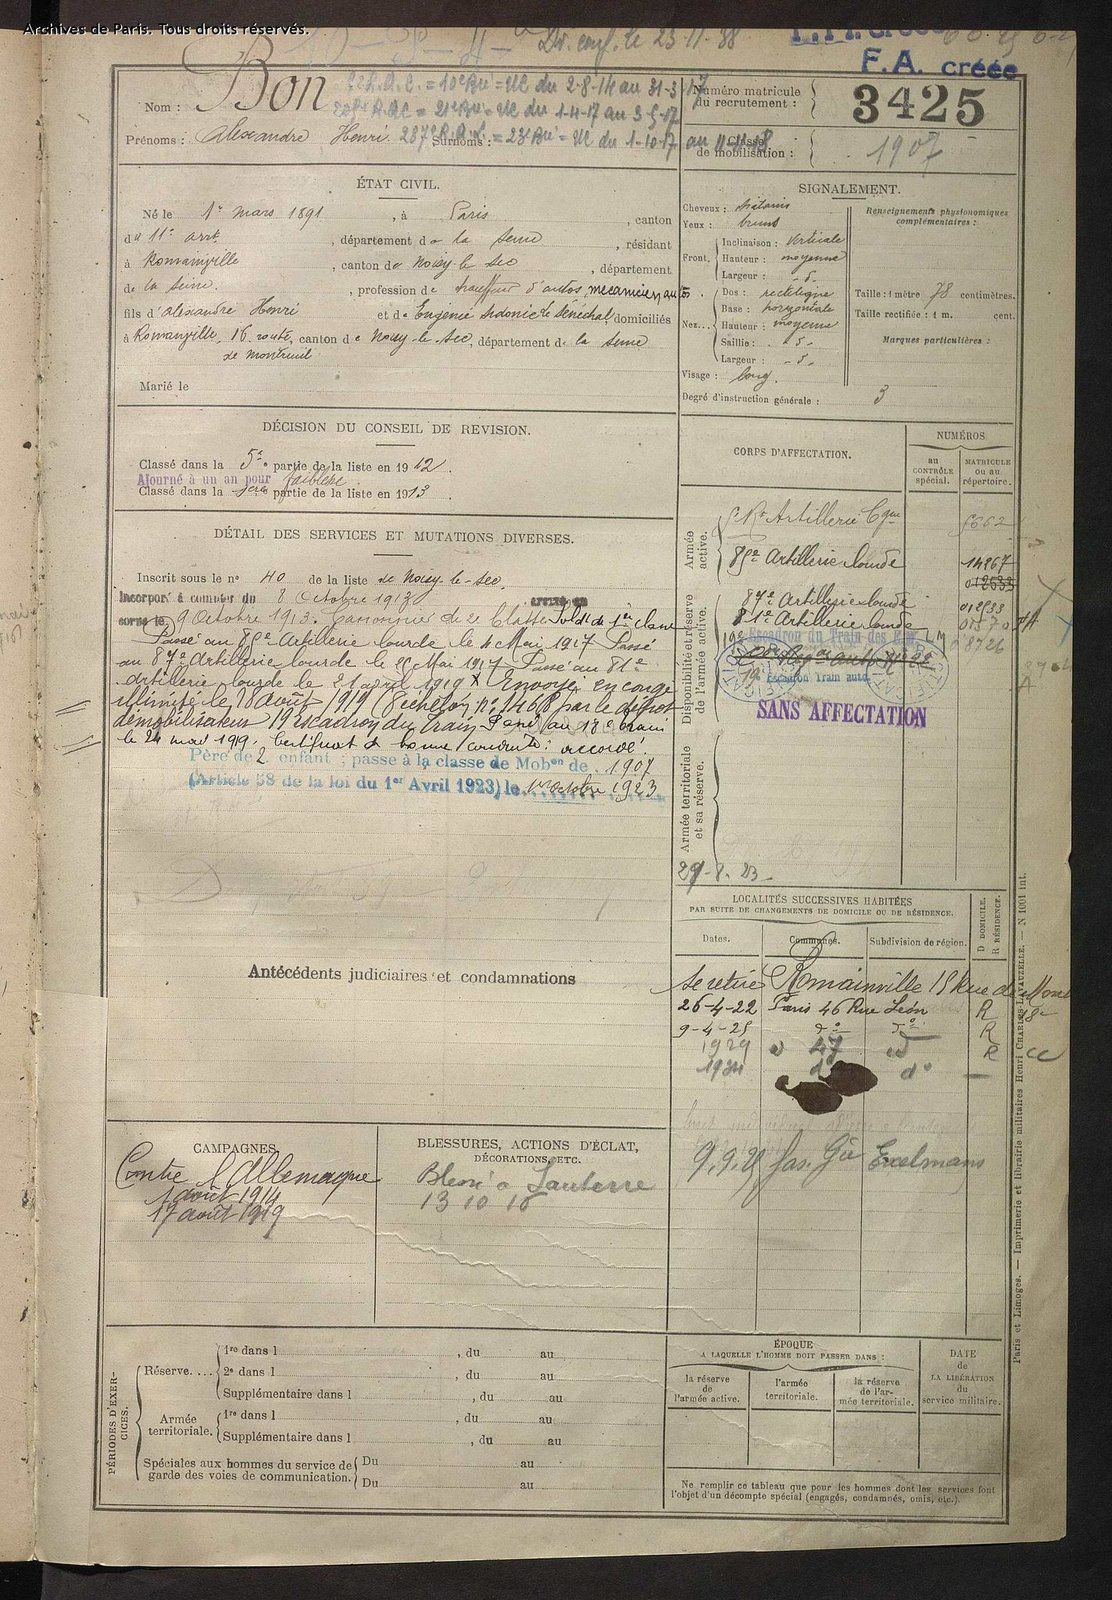 Archives de Paris. Tous droits réservés.
F.A. créée
Nom : Bon
2-8-14 au 31-3-17
du 1-4-17 au 3-5-17
Prénoms : Alexandre Henri Surnoms : du 1-10-17 au 11-11-18
Numéro matricule du recrutement : 3425
Classe de mobilisation : 1907
ÉTAT CIVIL.
Né le 1er mars 1891, à Paris, canton
du 11e arrt, département de la Seine, résidant
à Romainville, canton de Noisy-le-Sec, département
de la Seine, profession de chauffeur d'autos, mécanicien auto
fils d'Alexandre Henri et de Eugénie Sidonie le Sénéchal, domiciliés
à Romainville, 16 route, canton de Noisy-le-Sec, département de la Seine
de Montreuil
Marié le
SIGNALEMENT.
Cheveux : châtains
Yeux : bruns
Front. Inclinaison : verticale
Hauteur : moyenne
Largeur : -d-
Nez Dos : rectiligne
Base : horizontale
Hauteur : moyenne
Saillie : -d-
Largeur : -d-
Visage : long.
Degré d'instruction générale : 3
Renseignements physionomiques complémentaires :
Taille : 1 mètre 78 centimètres.
Taille rectifiée : 1 m. cent.
Marques particulières :
DÉCISION DU CONSEIL DE REVISION.
Classé dans la 5e partie de la liste en 1912.
Ajourné à un an pour faiblesse
Classé dans la 1ère partie de la liste en 1913.
DÉTAIL DES SERVICES ET MUTATIONS DIVERSES.
Inscrit sous le n° 40 de la liste de Noisy-le-Sec.
Incorporé à compter du 8 Octobre 1913 arrivé au
corps le 9 Octobre 1913. Canonnier de 2e Classe Soldat de 1ère classe
Passé au 89e Artillerie lourde le 4 Mai 1917 Passé
au 87e Artillerie lourde le 20 Mai 1917 Passé au 81e
Artillerie lourde le 21 avril 1919 X Envoyé en congé
illimité le 18 août 1919 (8e échelon N° 3468 par le dépôt
démobilisateur 19 Escadron du Train Passé au 13e train
le 24 mai 1919. Certificat de bonne conduite : accordé.
Père de 2 enfants ; passe à la classe de Mobon de 1907
(Article 58 de la loi du 1er Avril 1923) le 1er octobre 1923
CORPS D'AFFECTATION.
NUMÉROS
au CONTRÔLE spécial.
MATRICULE ou au répertoire.
Armée active.
Rt Artillerie
89e Artillerie lourde 14267
012633
Disponibilité et réserve de l'armée active.
87e Artillerie lourde 012533
81e Artillerie lourde
19e Escadron du Train des E.M.
19e Escadron Train auto.
SANS AFFECTATION
Armée territoriale et sa réserve.
LOCALITÉS SUCCESSIVES HABITÉES
PAR SUITE DE CHANGEMENTS DE DOMICILE OU DE RÉSIDENCE.
Dates. Communes. Subdivision de région. D DOMICILE. R RÉSIDENCE.
se retire Romainville 15 Rue de
26-4-22 Paris 46 Rue Léon R 18e
9-4-25 do do R
1929 d 47 id R
1934 do do —
9.9.29 fas. Gie Excelmans
Antécédents judiciaires et condamnations
CAMPAGNES
Contre l'Allemagne
1 août 1914
17 août 1919
BLESSURES, ACTIONS D'ÉCLAT,
DÉCORATIONS, ETC.
Blessé à Sauterre
13 10 18
PÉRIODES D'EXERCICES.
Réserve.... 1re dans l , du au
2e dans l , du au
Supplémentaire dans l , du au
Armée territoriale. 1re dans l , du au
Supplémentaire dans l , du au
Spéciales aux hommes du service de garde des voies de communication. Du au
Du au
ÉPOQUE
A LAQUELLE L'HOMME DOIT PASSER DANS :
la réserve de l'armée active.
l'armée territoriale.
la réserve de l'armée territoriale.
DATE de LA LIBÉRATION du service militaire.
Ne remplir ce tableau que pour les hommes dont les services font
l'objet d'un décompte spécial (engagés, condamnés, omis, etc.).
Paris et Limoges. — Imprimerie et librairie militaires Henri CHARLES-LAVAUZELLE. — N 1001 int.